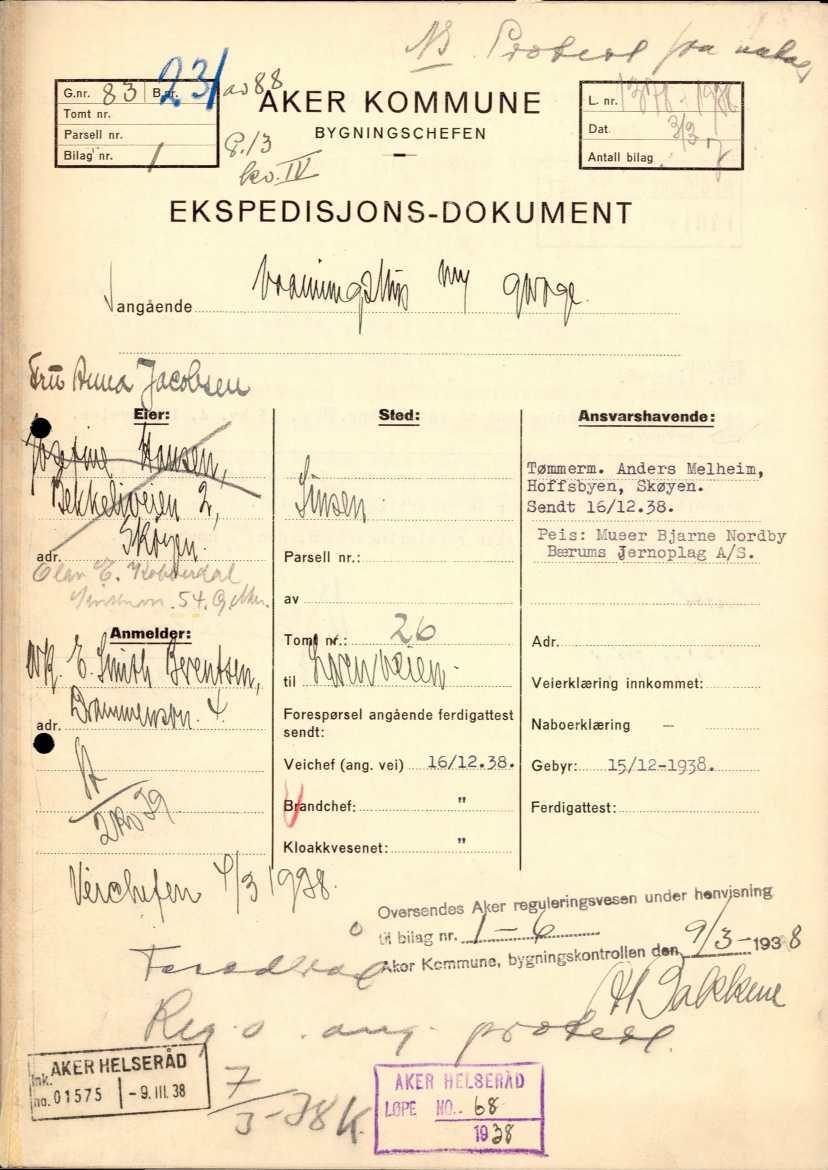 NB. Protest fra nabo
G.nr. 83 B.nr. 231 av 88
Tomt nr.
Parsell nr.
Bilag nr. 1
P. 13
kv. IV
AKER KOMMUNE
BYGNINGSCHEFEN
L. nr. 1938
Dat. 3/3
Antall bilag 7
EKSPEDISJONS-DOKUMENT
angående våningshus my garage.
Fru Anna Jacobsen
Eier:
Josefine Hansen,
Bekkeliveien 2,
Skøyen.
adr.
Olav E.
54.
Anmelder:
Ark. E. Smith Berentsen,
adr. Drammensvn. 4.
Sted:
Sinsen
Parsell nr.:
av
Tomt nr.: 26
til Lørenveien
Forespørsel angående ferdigattest
sendt:
Veichef (ang. vei) 16/12.38.
Brandchef: "
Kloakkvesenet: "
Ansvarshavende:
Tømmerm. Anders Melheim,
Hoffsbyen, Skøyen.
Sendt 16/12.38.
Peis: Muser Bjarne Nordby
Bærums Jernoplag A/S.
Adr.
Veierklæring innkommet:
Naboerklæring —
Gebyr: 15/12-1938.
Ferdigattest:
Veichefen 4/3 1938.
Oversendes Aker reguleringsvesen under henvisning
til bilag nr. 1-6
Aker Kommune, bygningskontrollen den 9/3-1938
Reg. o. ang. protest.
7/3-38 K.
AKER HELSERÅD
Ink.
no. 01575 -9. III. 38
AKER HELSERÅD
LØPE NO. 68
1938